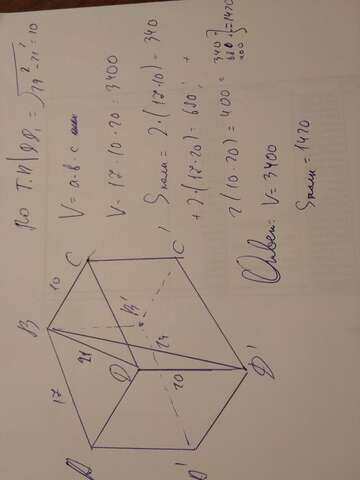 По Т.П | DD₁ = √29² - 21² = 10
V = a · b · c
V = 17 · 10 · 20 = 3400
Sполн = 2 · (17 · 10) = 340
+ 2 · (17 · 20) = 680 +
2 (10 · 20) = 400 = 340 680 400 } = 1420
Ответ: V = 3400
Sполн = 1420
B
10
C
C'
17
21
B'
D
29
20
A
A'
D'